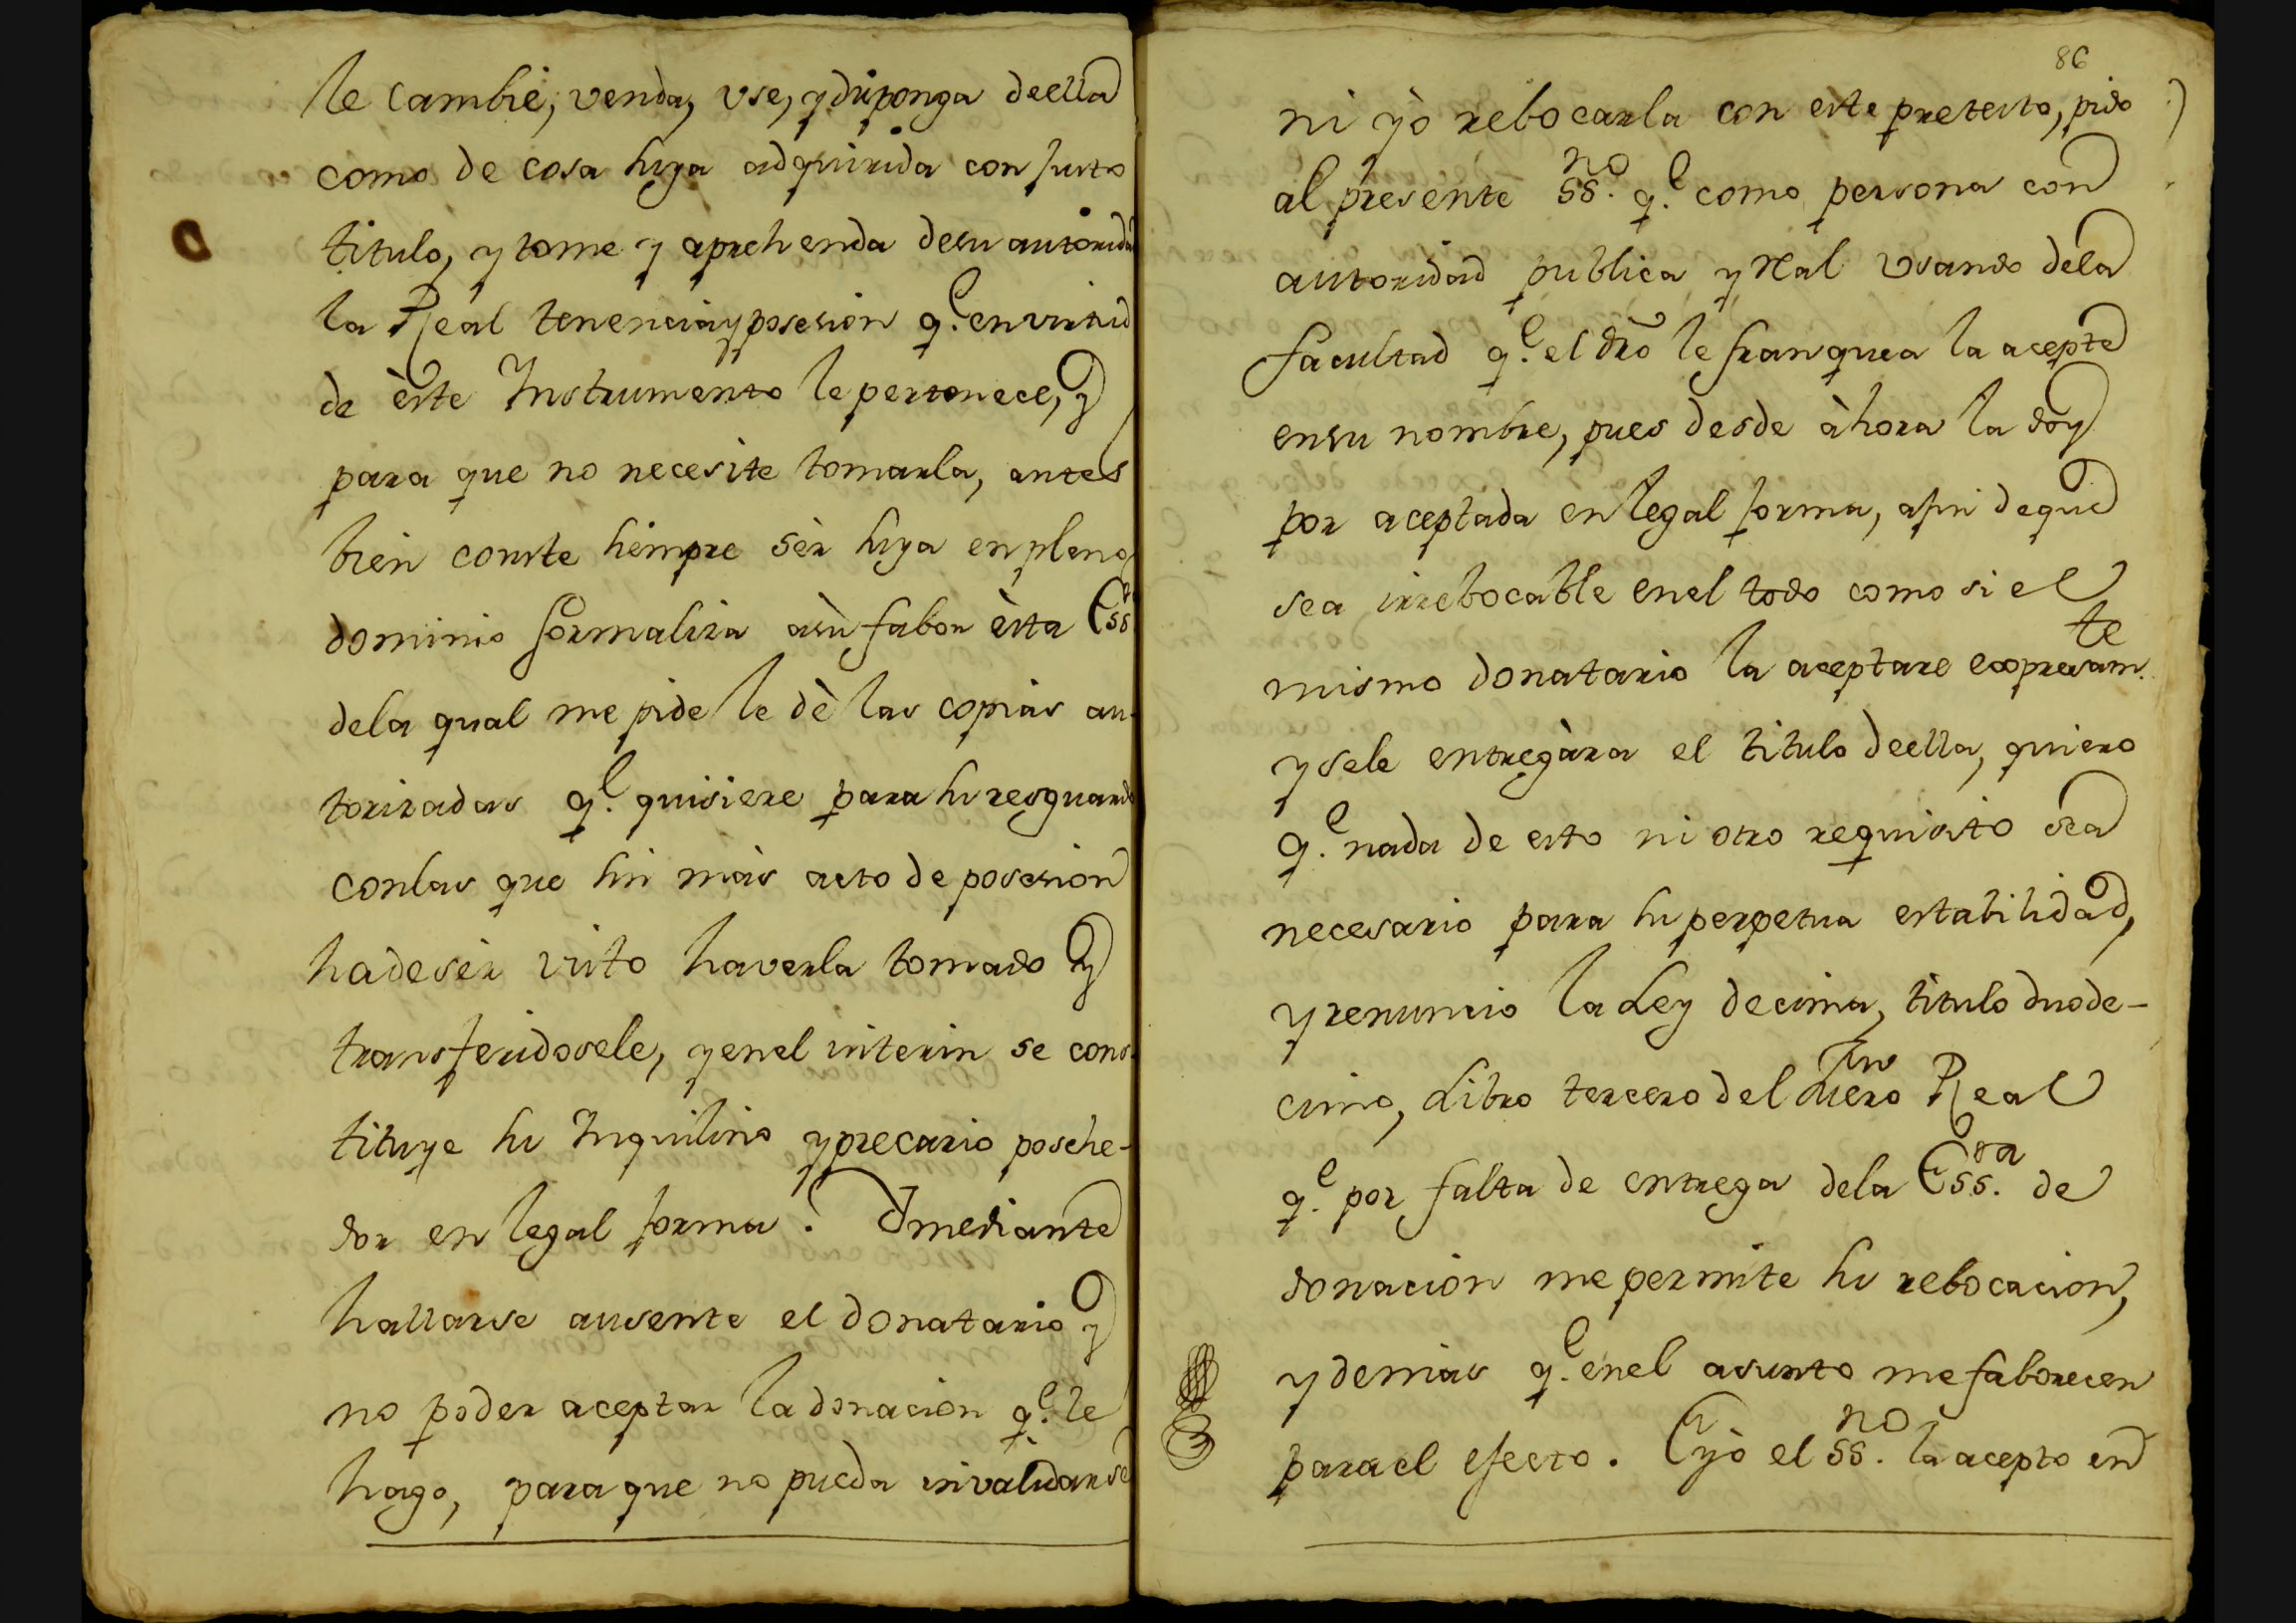 le cambie, venda, use, y disponga deella
como de cosa suya adquirida con justo
titulo, y tome y aprehenda desu autorida
la Real tenencia y posesion q.e en virtud
de èste Instrumento le pertenece, y
para que no necesite tomarla, antes
bien conste siempre sèr suya en pleno
dominio formaliza asù fabor èsta Ess
dela qual me pide le dè las copias au-
torizadas q.e quisiere para su resguardo
conlas que sin màs acto de posesion
hadesèr visto haverla tomado y
transferidosele, yenel interin se cons-
tituye su Inquilino y precario posehe-
dor en legal forma. Y mediante
hallarse ausente el donatario y
no poder aceptar la donacion q.e le
hago, para que no pueda invalidarse
86
ni yò rebocarla con este pretesto, pido
al presente ss.no q.e como persona con
autoridad publica y Rl usando dela
facultad q.e el dro le franquea la acepte
ensu nombre, pues desde àhora la doy
por aceptada en legal forma, afin deque
sea irrebocable enel todo como si el
mismo donatario la aceptare expresam.te
ysele entregàra el titulo deella, quiero
q.e nada de esto ni otro requisito sea
necesario para su perpetua estabilidad,
y renuncio la Ley decima, titulo duode-
cimo, Libro tercero del Fuero Real
q.e por falta de entrega dela Ess.ra de
donacion me permite su rebocacion,
y demas q.e enel asunto me faborecen
para el efecto. E yò el ss.no la acepto en